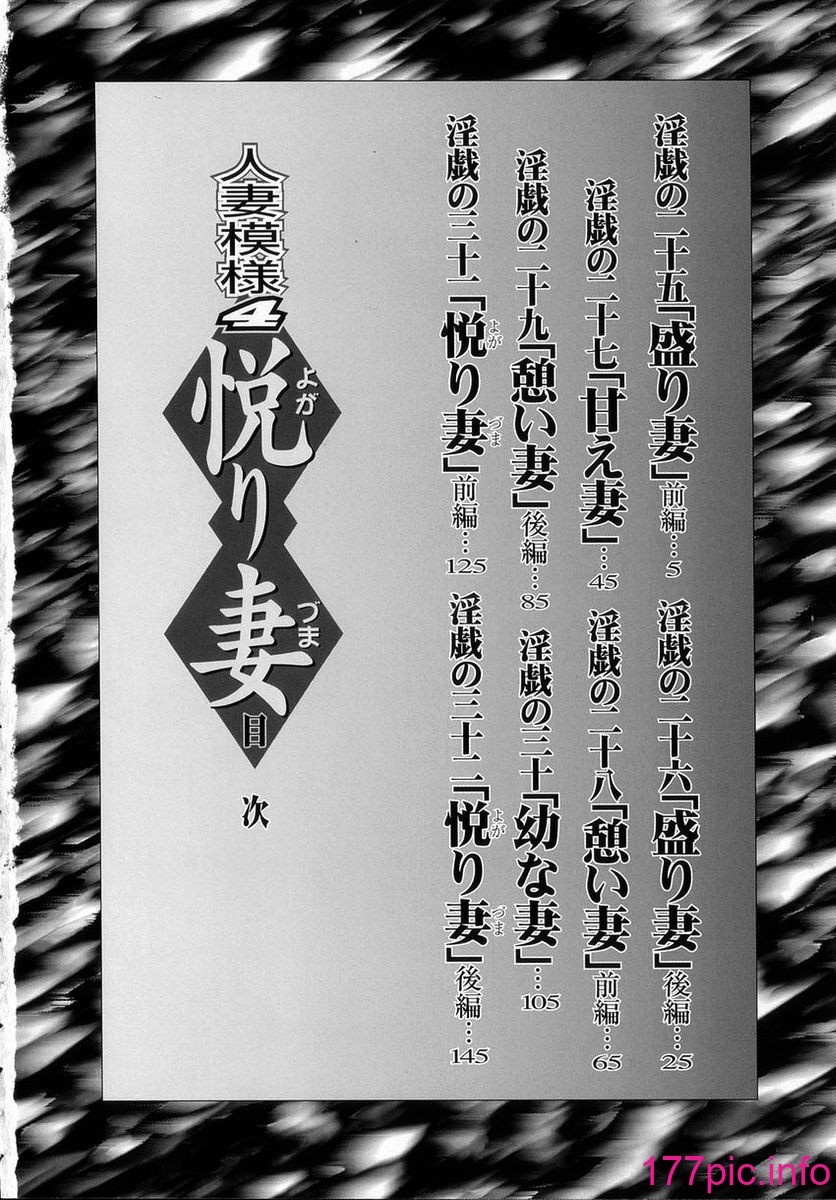 淫戯の二十五「盛り妻」前編…5
淫戯の二十六「盛り妻」後編…25
淫戯の二十七「甘え妻」…45
淫戯の二十八「憩い妻」前編…65
淫戯の二十九「憩い妻」後編…85
淫戯の三十「幼な妻」…105
淫戯の三十一「悦り妻」前編…125
よが
づま
淫戯の三十二「悦り妻」後編…145
よが
づま
人妻模様4
悦り妻
よが
づま
目次
177pic.info